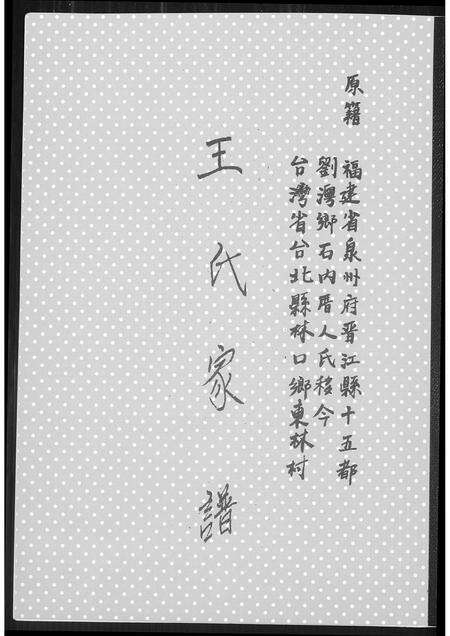 原籍 福建省泉州府晋江縣十五都
劉灣鄉石內厝人氏移今
台灣省台北縣林口鄉東林村
王氏家譜